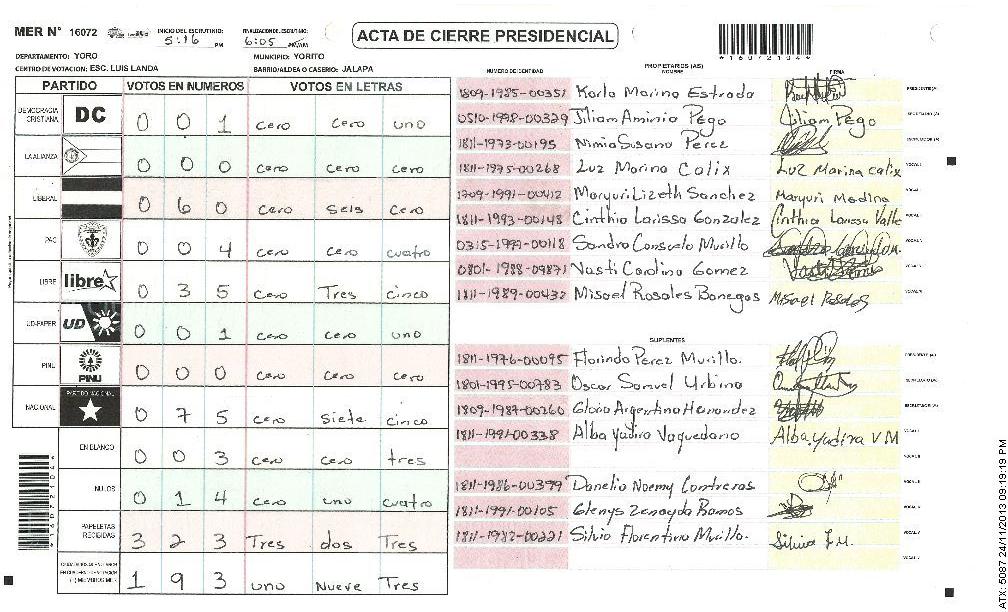 MER N° 16072
INICIO DEL ESCRUTINIO: 5:16 PM
FINALIZACION DE ESCRUTINIO: 6:05 PM/AM
ACTA DE CIERRE PRESIDENCIAL
16072104
DEPARTAMENTO: YORO
MUNICIPIO: YORITO
CENTRO DE VOTACION: ESC. LUIS LANDA
BARRIO/ALDEA O CASERIO: JALAPA
PARTIDO VOTOS EN NUMEROS VOTOS EN LETRAS
DEMOCRACIA CRISTIANA DC 0 0 1 cero cero uno
LA ALIANZA 0 0 0 cero cero cero
LIBERAL 0 6 0 cero seis cero
PAC 0 0 4 cero cero cuatro
LIBRE libre 0 3 5 cero Tres cinco
UD-FAPER UD 0 0 1 cero cero uno
PINU PINU 0 0 0 cero cero cero
NACIONAL PARTIDO NACIONAL 0 7 5 cero siete cinco
EN BLANCO 0 0 3 cero cero tres
NULOS 0 1 4 cero uno cuatro
PAPELETAS RECIBIDAS 3 2 3 Tres dos Tres
1 9 3 uno Nueve Tres
NUMERO DE IDENTIDAD PROPIETARIOS (AS) NOMBRE FIRMA
1809-1985-00351 Karla Marina Estrada PRESIDENTE(A)
0510-1998-00329 Jiliam Aminia Pego Jiliam Pego SECRETARIO (A)
1811-1973-00195 Nimia Susana Perez ESCRUTADOR (A)
1811-1975-00268 Luz Marina Calix Luz Marina calix VOCAL I
1709-1991-00412 Maryuri Lizeth Sanchez Maryuri Medina
1811-1993-00148 Cinthia Larissa Gonzalez Cinthia Larissa Valle
0315-1999-00118 Sandra Consuelo Murillo
0801-1988-09871 Vasti Carolina Gomez
1811-1989-00432 Misael Rosales Banegas Misael Rosales
SUPLENTES
1811-1976-00095 Florinda Perez Murillo. PRESIDENTE (A)
1801-1995-00783 Oscar Samuel Urbina SECRETARIO (A)
1809-1987-00260 Gloria Argentina Hernandez ESCRUTADOR (A)
1811-1991-00338 Alba Yadira Vaquedano Alba Yadira V M
1811-1986-00399 Danelia Noemy Contreras
1811-1991-00105 Glenys Zenayda Ramos
1811-1982-00221 Silvia Florentina Murillo. Silvia F.M.
16072104
ATX: 5087 24/11/2013 09:19:19 PM